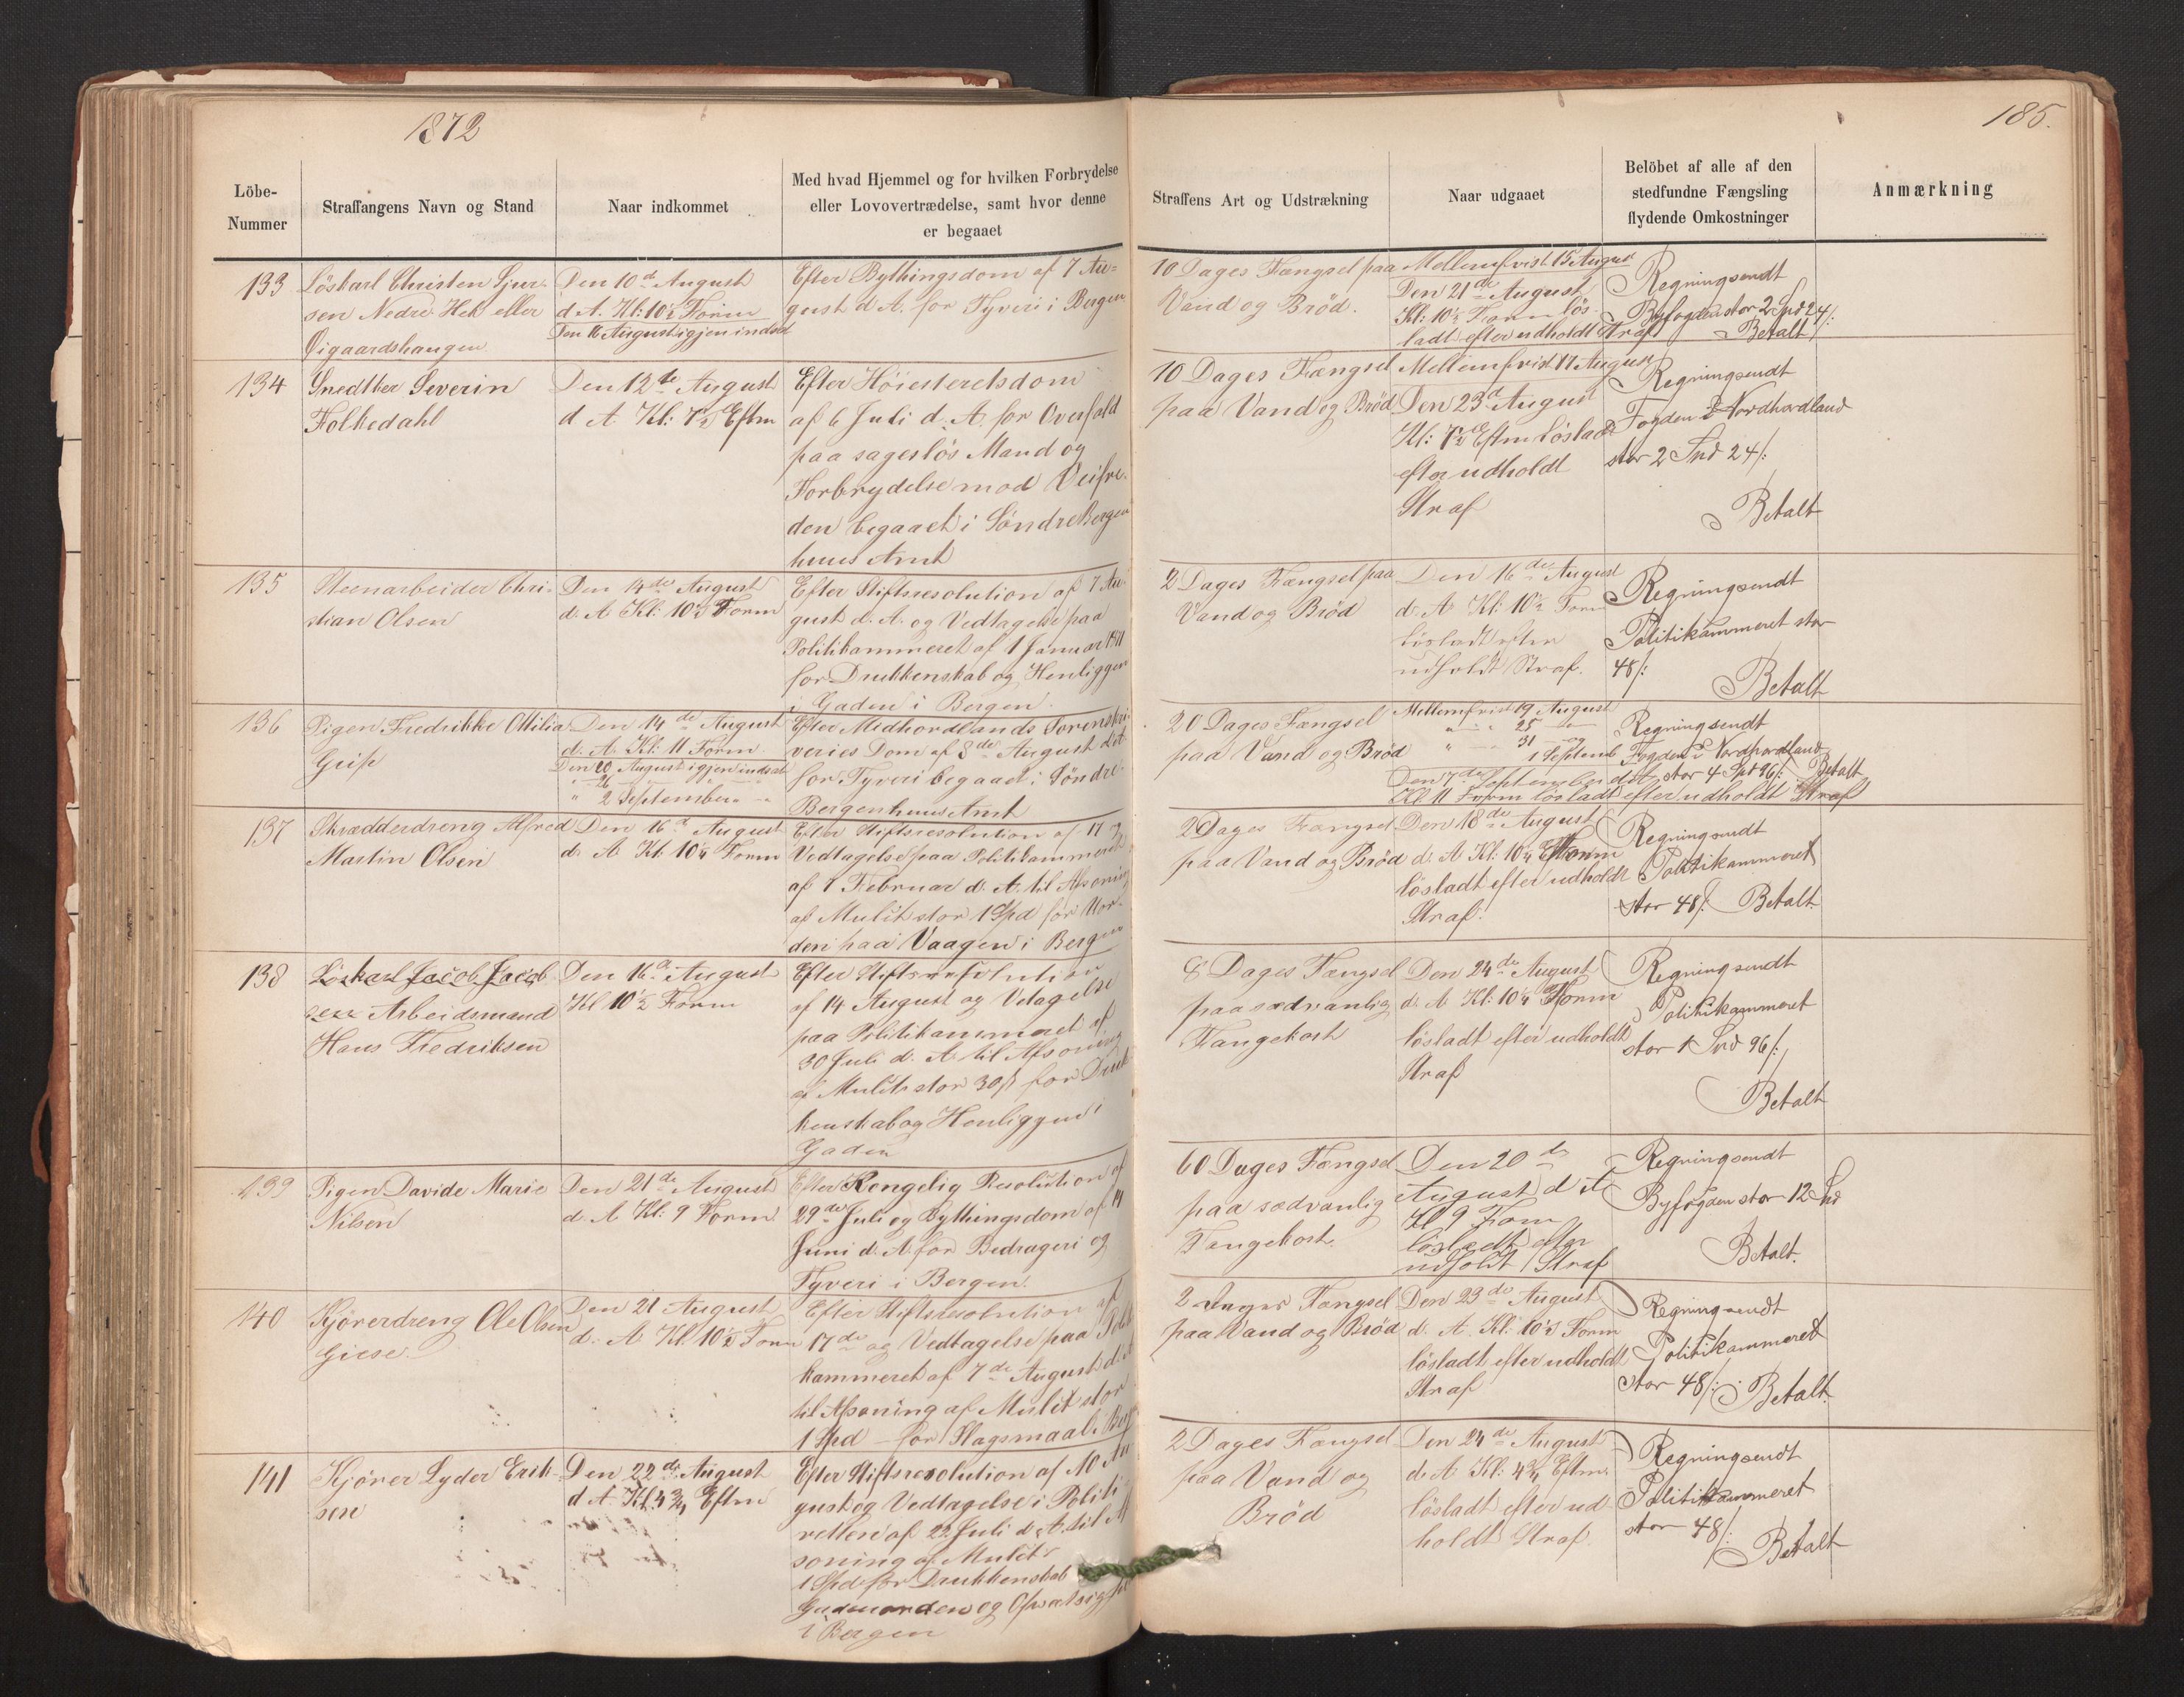 1872
185.
Löbe-
Nummer
Straffangens Navn og Stand
Naar indkommet
Med hvad Hjemmel og for hvilken Forbrydelse
eller Lovovertrædelse, samt hvor denne
er begaaet
Straffens Art og Udstrækning
Naar udgaaet
Belöbet af alle af den
stedfundne Fængsling
flydende Omkostninger
Anmærkning
133
Löskarl Christen Sjur-
sen Nedre Hek eller
Öigaardshaugen
Den 10de August
d. A. Kl: 10½ Form
Den 16 August igjen indsat
Efter Bythingsdom af 7 Au-
gust d. A. for Tyveri i Bergen
10 Dages Fængsel paa
Vand og Bröd.
Mellemfrist 15 August
Den 21de August
Kl: 10½ Form lös-
ladt efter udholdt Straf
Regning sendt
Byfogden stor 2 Spd 24/:
Betalt
134
Snedker Severin
Folkedahl
Den 12te August
d. A. Kl: 7½ Eftm
Efter Höiesteretsdom
af 6 Juli d. A. for Overfald
paa sageslös Mand og
Forbrydelse mod Veifre-
den begaaet i Söndre Bergen
huus Amt
10 Dages Fængsel
paa Vand og Bröd
Mellemfrist 17 August
Den 23de August
Kl: 7½ Eftm löslad
efter udholdt
Straf
Regning sendt
Fogden i Nordhordland
stor 2 Spd 24/:
Betalt
135
Steenarbeider Chri-
stian Olsen
Den 14de August
d. A. Kl: 10½ Form
Efter Stiftsresolution af 7 Au-
gust d. A. og Vedtagelse paa
Politikammeret af 1 Januar 1871
for Drukkenskab og Henliggen
i Gaden i Bergen
2 Dages Fængsel paa
Vand og Bröd
Den 16de August
d. A. Kl: 10½ Form
lösladt efter
udholdt Straf.
Regning sendt
Politikammeret stor
48/:
Betalt
136
Pigen Fredrikke Ottilia
Geip
Den 14de August
d. A. Kl: 11 Form
Den 20 August igjen indsat
" 26
" 2 September
Efter Midhordlands Sorenskri-
veries Dom af 8de August d. A.
for Tyveri begaaet i Söndre
Bergenhuus Amt
20 Dages Fængsel
paa Vand og Bröd
Mellemfrist 19 August
" 25
" 31 og
1 Septemb
Den 7de September d. A.
Kl 11 Form lösladt efter udholdt Straf
Regning sendt
Fogden i Nordhordland
stor 4 Spd 96/: Betalt
137
Skrædderdreng Alfred
Martin Olsen
Den 16de August
d. A. Kl: 10¼ Form
Efter Stiftsresolution af 17 og
Vedtagelse paa Politikammeret
af 1 Februar d. A. til Afsoning
af Mulkt stor 1 Spd for Uor-
den paa Vaagen i Bergen
2 Dages Fængsel
paa Vand og Bröd
Den 18de August
d. A. Kl: 10¼ Form
lösladt efter udholdt
Straf.
Regning sendt
Politikammeret
stor 48/: Betalt
138
Löskarl Jacob Jacob
sen Arbeidsmand
Hans Fredriksen
Den 16de August
Kl 10½ Form
Efter Stiftsresolution
af 14 August og Vdtagelse
paa Politikammeret af
30 Juli d. A. til Afsoning
af Mulkt stor 30/: for Druk
kenskab og Henliggen i
Gaden
8 Dages Fængsel
paa sædvanlig
Fangekost
Den 24de August
d. A. Kl: 10¼ Form
lösladt efter udholdt
Straf
Regning sendt
Politikammeret
stor 1 Spd 96/:
Betalt
139
Pigen Davide Marie
Nilsen
Den 21de August
d. A. Kl: 9 Form
Efter Kongelig Resolution af
29de Juli og Bythingsdom af 14
Juni d. A. for Bedrageri og
Tyveri i Bergen.
60 Dages Fængsel
paa sædvanlig
Fangekost.
Den 20de
August d. A.
Kl 9 Form
lösladt efter
udholdt Straf
Regning sendt
Byfogden stor 12 Spd
Betalt.
140
Kjörerdreng Ole Olsen
Giese.
Den 21 August
d. A. Kl 10½ Form
Efter Stiftsresolution af
17de og Vedtagelse paa Poli
kammeret af 7de August d. A
til Afsoning af Mulkt stor
1 Spd for Slagsmaal i Berg
2 Dages Fængsel
paa Vand og Bröd
Den 23de August
d. A. Kl: 10½ Form
lösladt efter udholdt
Straf
Regning sendt
Politikammeret
stor 48/: Betalt
141
Kjörer Lyder Erik-
sen
Den 22de August
d. A. Kl 4¾ Eftm
Efter Stiftsresolution af 10 Au
gust og Vedtagelse i Politi-
retten af 22 Juli d. A. til Af
soning af Mulkt
1 Spd for Drukkenskab
Gadeuorden og
i Bergen
2 Dages Fængsel
paa Vand og
Bröd
Den 24de August
d. A. Kl: 4¾ Eftm.
lösladt efter ud-
holdt Straf.
Regning sendt
Politikammeret
stor 48/:
Betalt